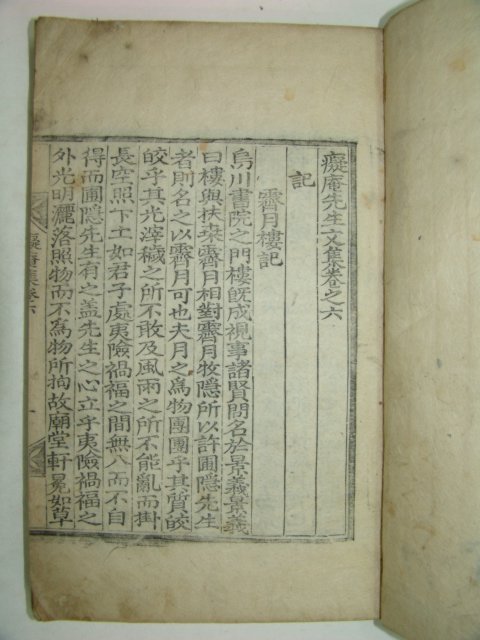 癡庵先生文集卷之六
記
霽月樓記
烏川書院之門樓旣成視事諸賢問名於景義景義
曰樓與扶桒霽月相對霽月牧隱所以許圃隱先生
者則名之以霽月可也夫月之爲物團團乎其質皎
皎乎其光滓穢之所不敢及風雨之所不能亂而掛
長空照下土如君子處夷險禍福之間無入而不自
得而圃隱先生有之盖先生之心立乎夷險禍福之
外光明灑落照物而不為物所拘故廟堂軒冕如草
癡庵集卷六